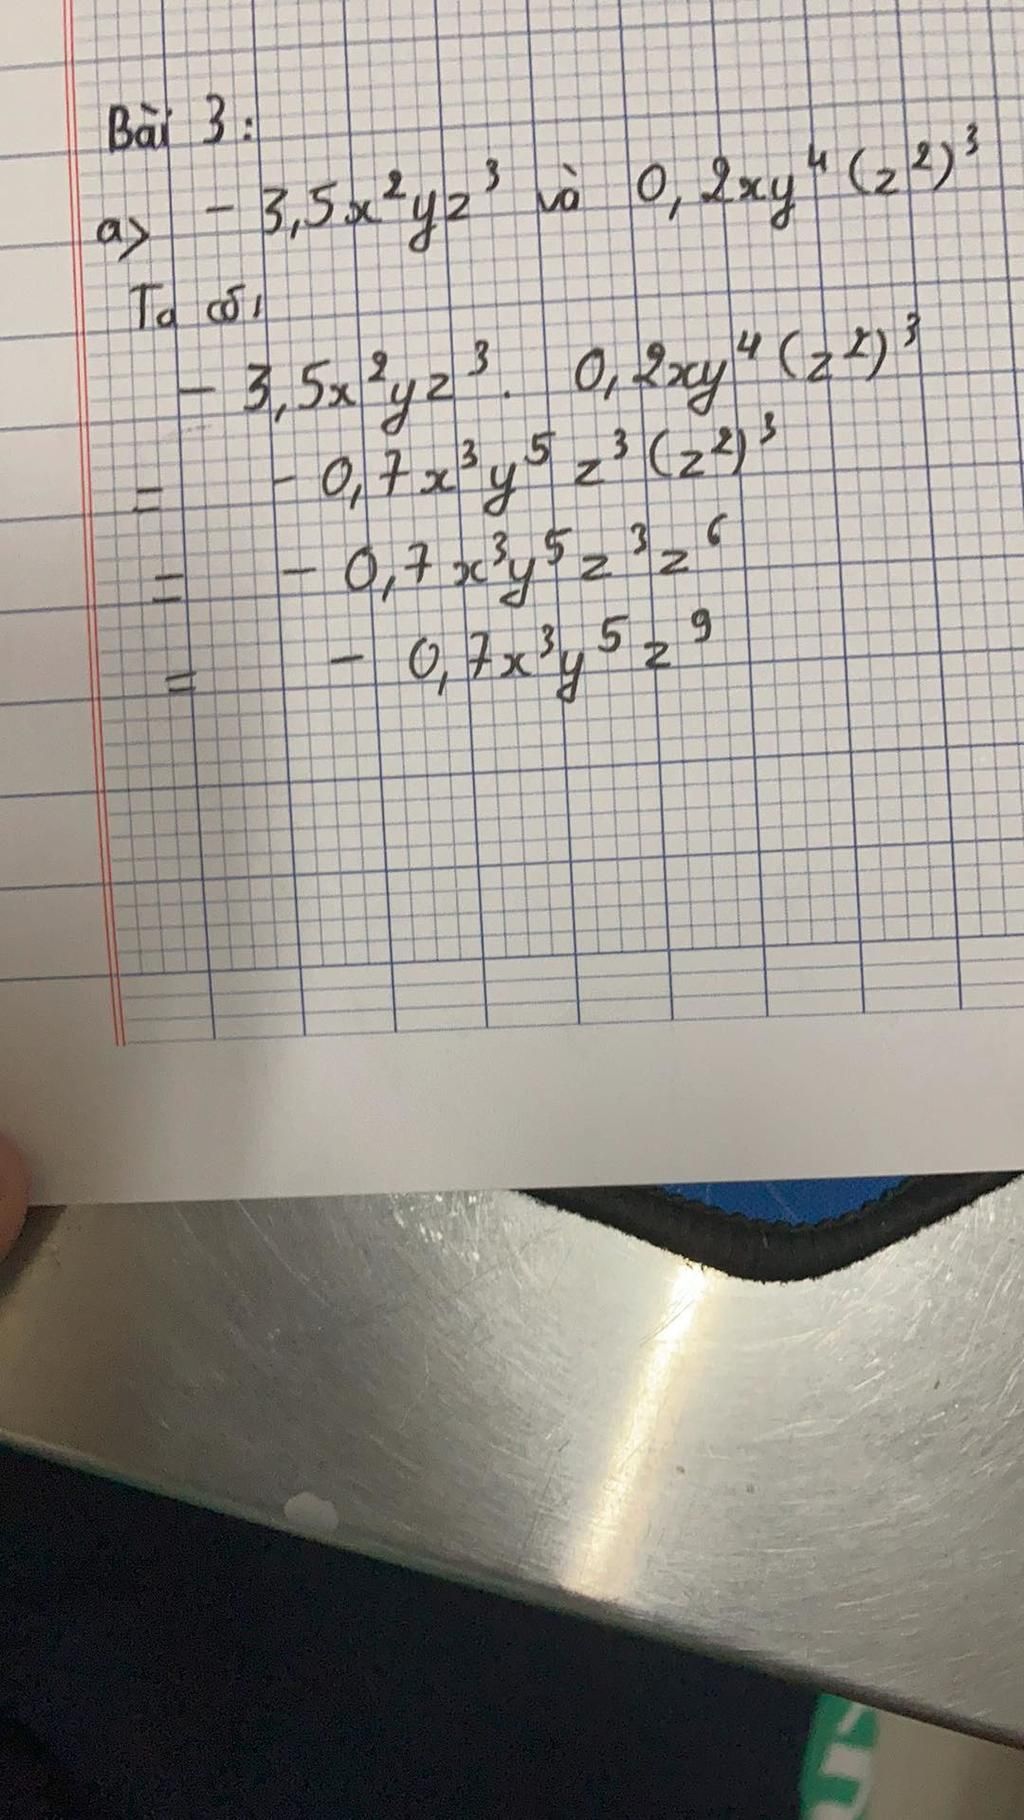 Bài 3:
a> - 3,5x²yz³ và 0,2xy⁴(z²)³
Ta có,
- 3,5x²yz³ . 0,2xy⁴(z²)³
= - 0,7x³y⁵z³(z²)³
= - 0,7x³y⁵z³z⁶
= - 0,7x³y⁵z⁹